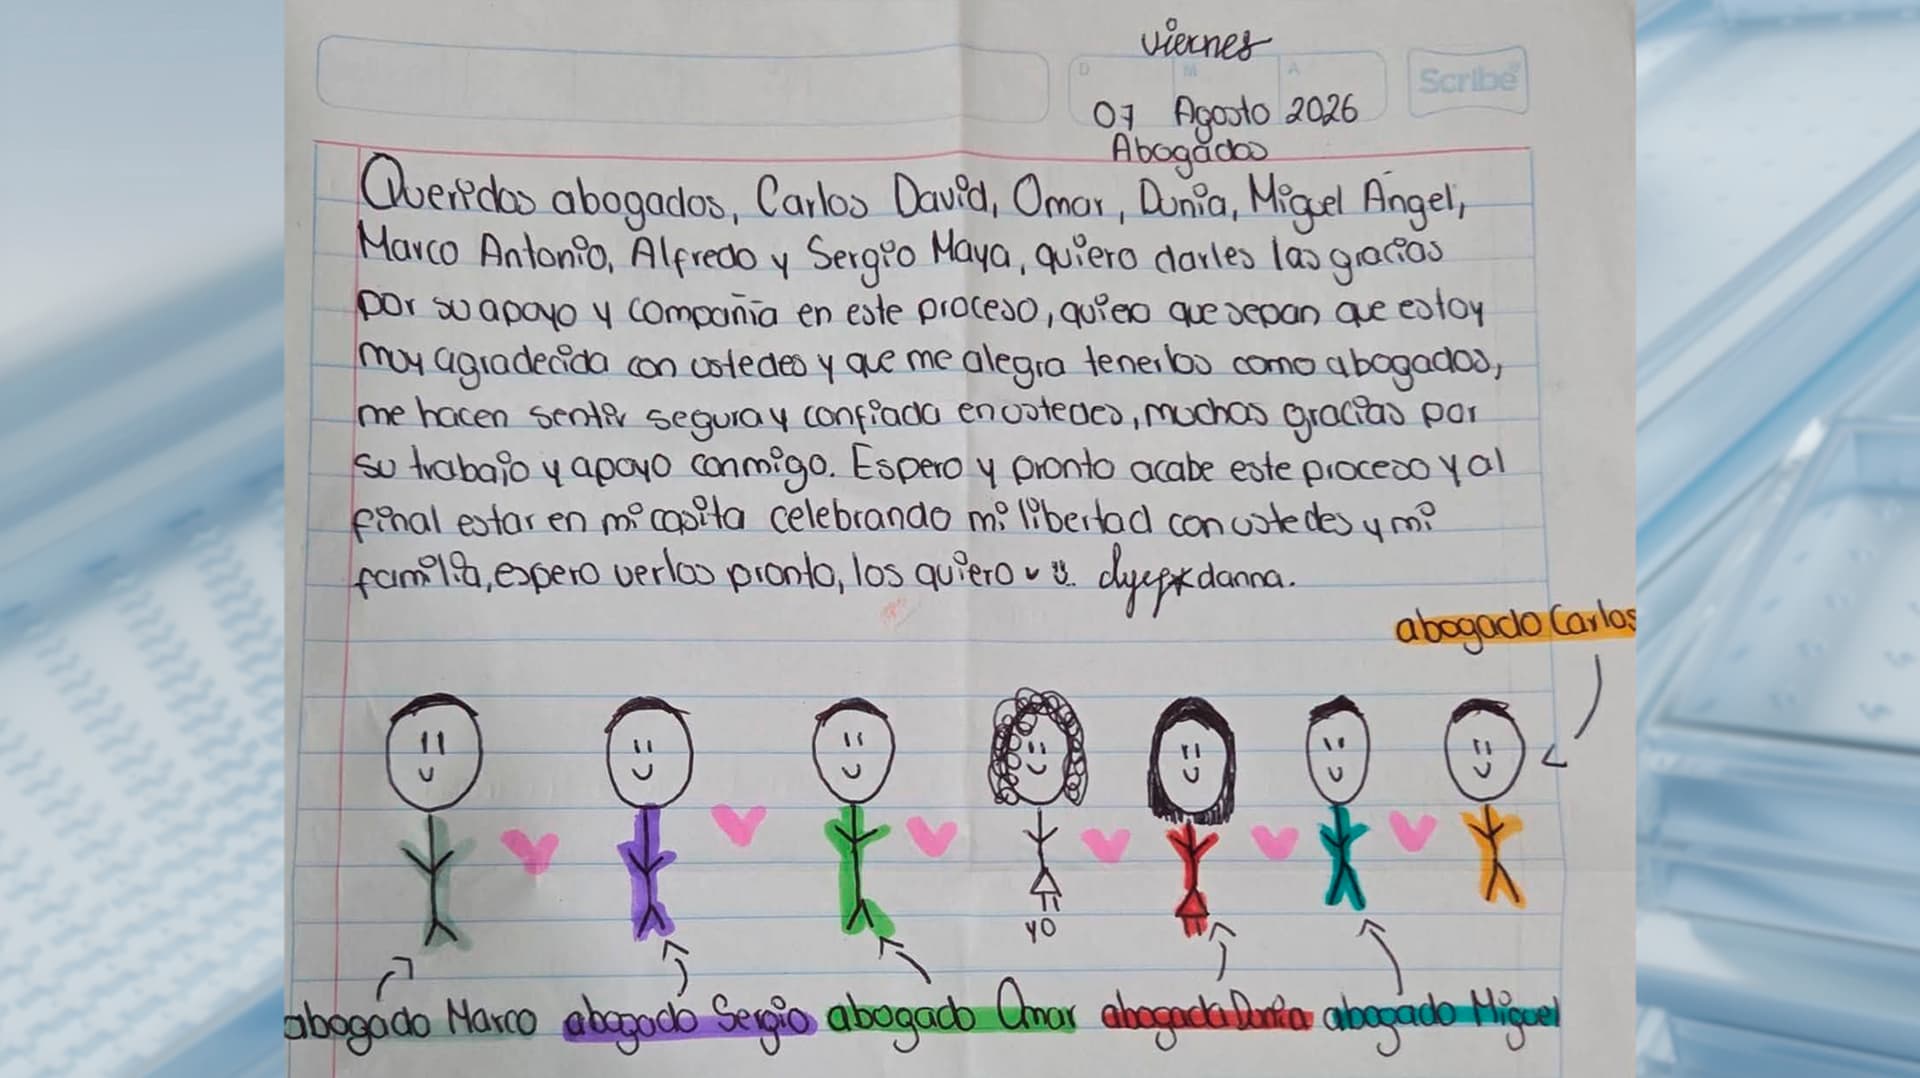 viernes
D M A
Scribe
07 Agosto 2026
Abogados
Queridos abogados, Carlos David, Omar, Dunia, Miguel Angel,
Marco Antonio, Alfredo y Sergio Maya, quiero darles las gracias
por su apoyo y compañia en este proceso, quiero que sepan que estoy
muy agradecida con ustedes y que me alegra tenerlos como abogados,
me hacen sentir segura y confiada en ustedes, muchas gracias por
su trabajo y apoyo conmigo. Espero y pronto acabe este proceso y al
final estar en mi casita celebrando mi libertad con ustedes y mi
familia, espero verlos pronto, los quiero danna.
abogado Carlos
yo
abogado Marco abogado Sergio abogado Omar abogada Dunia abogado Miguel